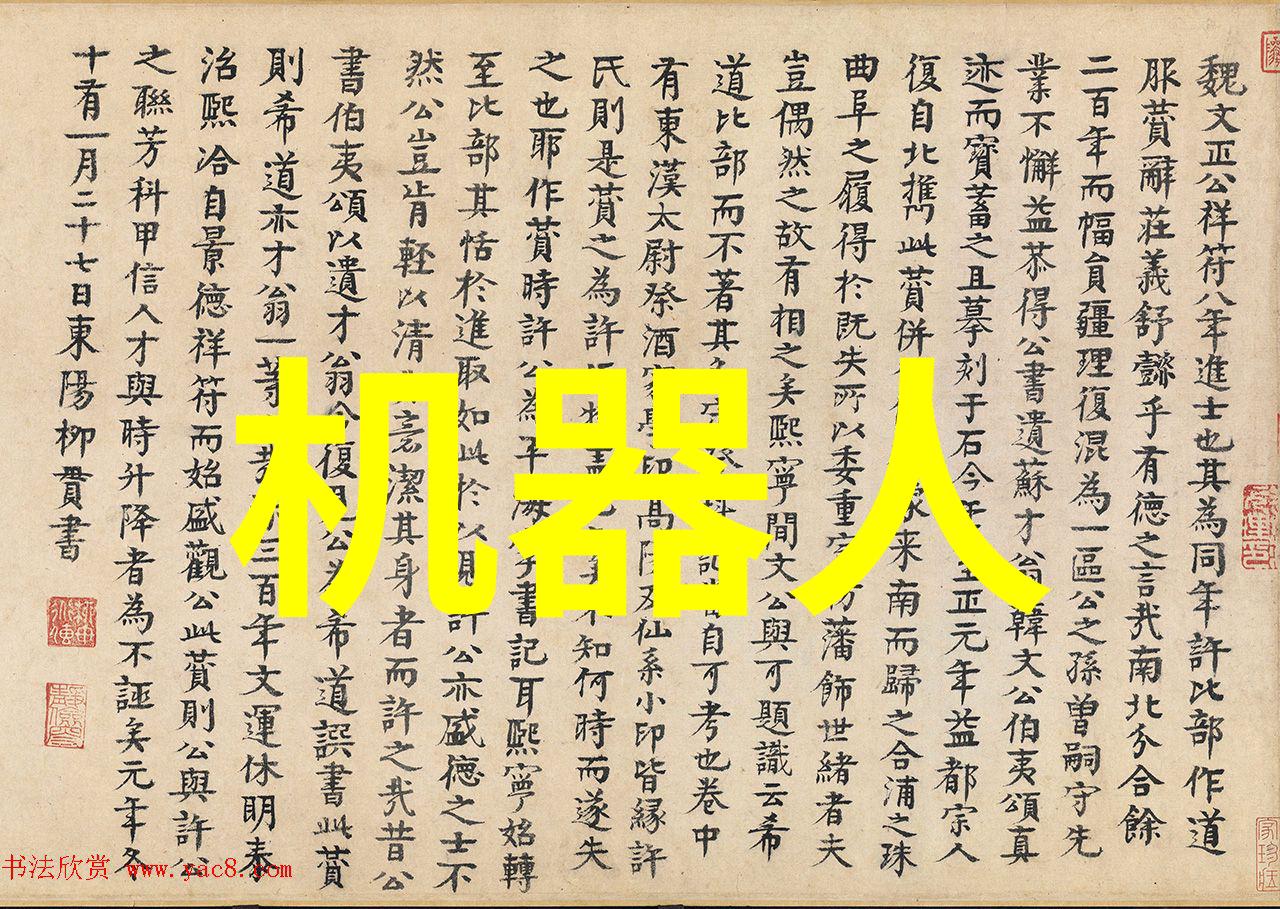 魏文正公祥符八年進士也其為同年許比部作道
服贊辭莊義舒懿乎有德之言哉南北分合餘
二百年而幅員疆理復混為一區公之孫曾嗣守先
業不懈益恭得公書遺蘇才翁韓文公伯夷頌真
迹而寶蓄之且摹刻于石今年至正元年益都宗人
復自北攜此贊併 來南而歸之合浦之珠
曲阜之履得於既失所以委重 藩飾世緒者夫
豈偶然之故有相之矣熙寧間文公與可題識云希
道比部而不著其 自可考也卷中
有東漢太尉祭酒家學印高陽及仙系小印皆緣許
氏則是贊之為許 知何時而遂失
之也耶作贊時許公為平海 書記耳熙寧始轉
至比部其恬於進取如此於以觀許公亦盛德之士不
然公豈肯輕以清 潔其身者而許之哉昔公
書伯夷頌以遺才翁今復 公為希道譔書此贊
則希道亦才翁一等 三百年文運休明泰
治熙洽自景德祥符而始盛觀公此贊則公與許公
之聯芳科甲信人才與時升降者為不誣矣元年冬
十有一月二十七日東陽柳貫書
机器人
书法欣赏 www.yac8.com